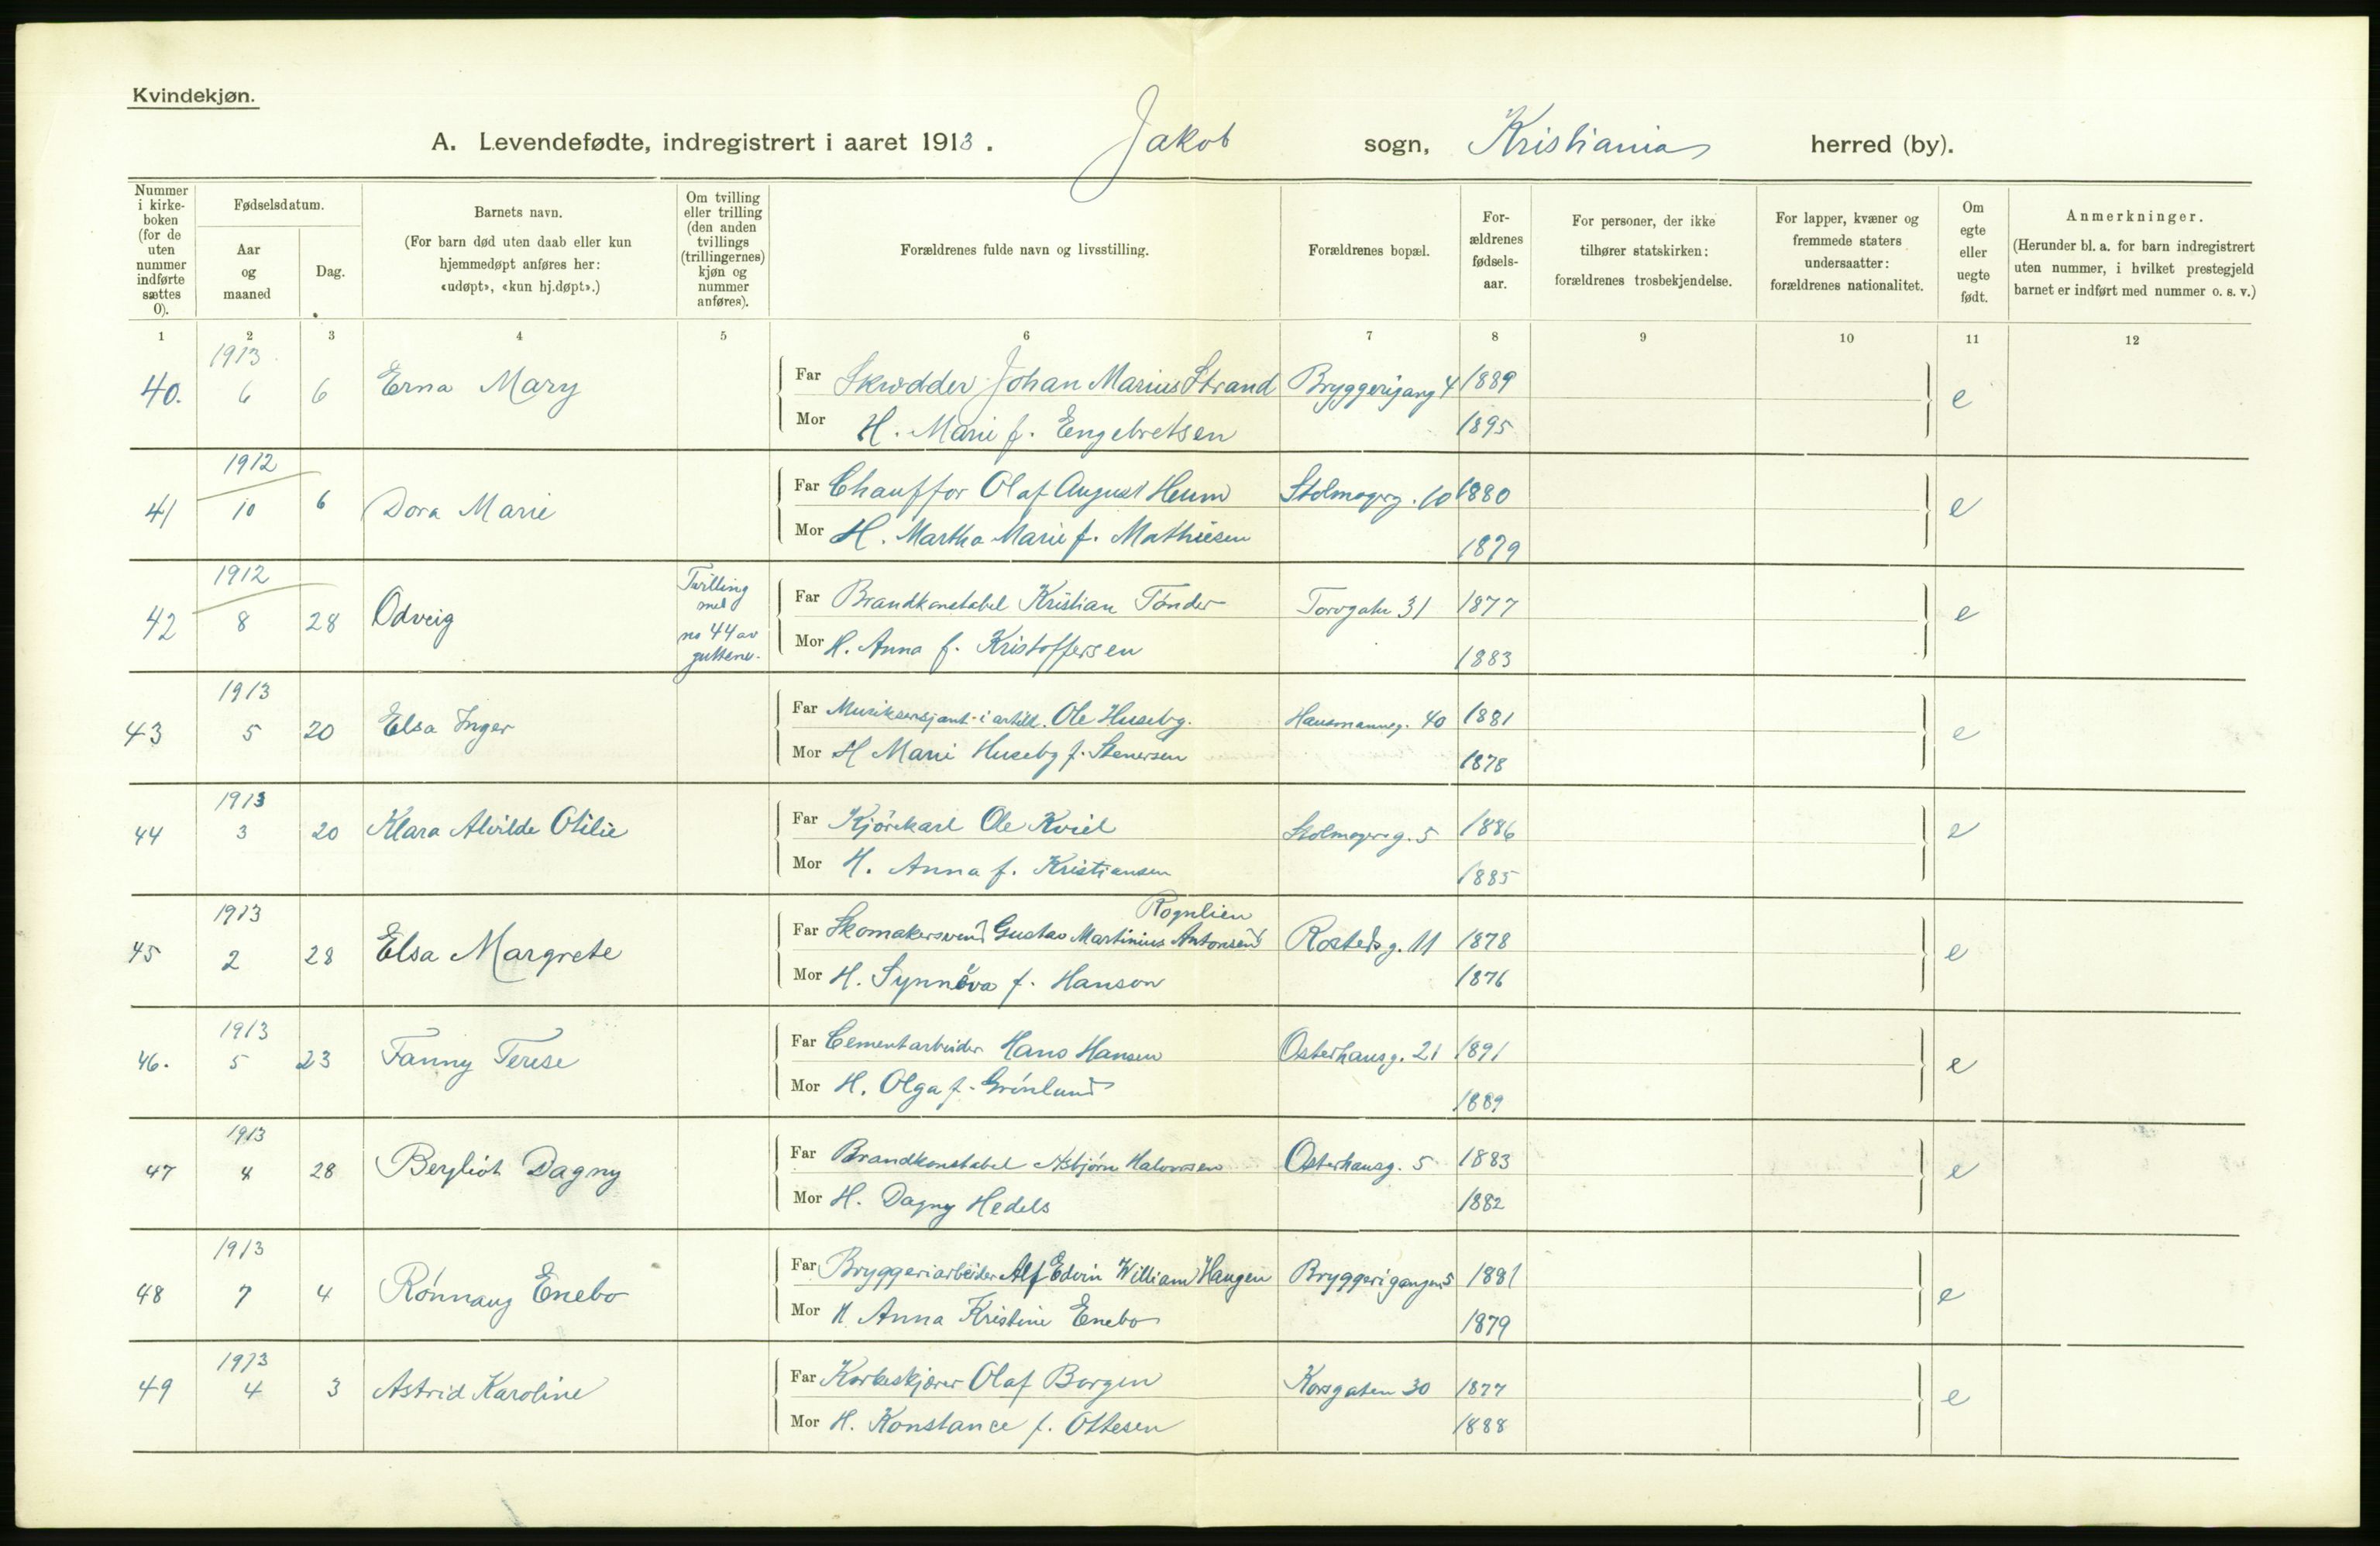 Kvindekjøn.
A. Levendefødte, indregistrert i aaret 1913. Jakob sogn, Kristiania herred (by).
Nummer i kirke-boken (for de uten nummer indførte sættes 0).
Fødselsdatum.
Aar og maaned
Dag.
Barnets navn.
(For barn død uten daab eller kun hjemmedøpt anføres her: «udøpt», «kun hj.døpt».)
Om tvilling eller trilling (den anden tvillings (trillingernes) kjøn og nummer anføres).
Forældrenes fulde navn og livsstilling.
Forældrenes bopæl.
For-ældrenes fødsels-aar.
For personer, der ikke tilhører statskirken: forældrenes trosbekjendelse.
For lapper, kvæner og fremmede staters undersaatter: forældrenes nationalitet.
Om egte eller uegte født.
Anmerkninger.
(Herunder bl. a. for barn indregistrert uten nummer, i hvilket prestegjeld barnet er indført med nummer o. s. v.)
1 2 3 4 5 6 7 8 9 10 11 12
1913
40. 6 6 Erna Mary Far Skrædder Johan Marius Strand Bryggerigang 4 1889 e
Mor H. Marie f. Engebretsen 1895
1912
41 10 6 Dora Marie Far Chauffør Olaf August Heum Stolmagerg. 10 1880 e
Mor H. Martha Marie f. Mathiesen 1879
1912
42 8 28 Odveig Tvilling med no 44 av guttene. Far Brandkonstabel Kristian Tønder Torvgaten 31 1877 e
Mor H. Anna f. Kristoffersen 1883
1913
43 5 20 Elsa Inger Far Musiksersjant i artill. Ole Huseby. Hausmannsg. 40 1881 e
Mor H Marie Huseby f. Stenersen 1878
1913
44 3 20 Klara Alvilde Otilie Far Kjørekarl Ole Kviel Stolmagerg. 5 1886 e
Mor H. Anna f. Kristiansen 1885
1913 Rognlien
45 2 28 Elsa Margrete Far Skomakersvend Gustav Martinius Antonsen Rosteds g. 11 1878 e
Mor H. Synnøva f. Hanson 1876
1913
46. 5 23 Fanny Terese Far Cementarbeider Hans Hansen Osterhausg. 21 1891 e
Mor H. Olga f. Grønlund 1889
1913
47 4 28 Bergliot Dagny Far Brandkonstabel Asbjørn Halvorsen Osterhausg. 5 1883 e
Mor H. Dagny Hedels 1882
1913
48 7 4 Rønnaug Enebo Far Bryggeriarbeider Alf Edvin William Haugen Bryggerigangen 5 1881 e
Mor H Anna Kristine Enebo 1879
1913
49 4 3 Astrid Karoline Far Korkeskjærer Olaf Borgen Korsgaten 30 1877 e
Mor H. Konstance f. Ottesen 1888